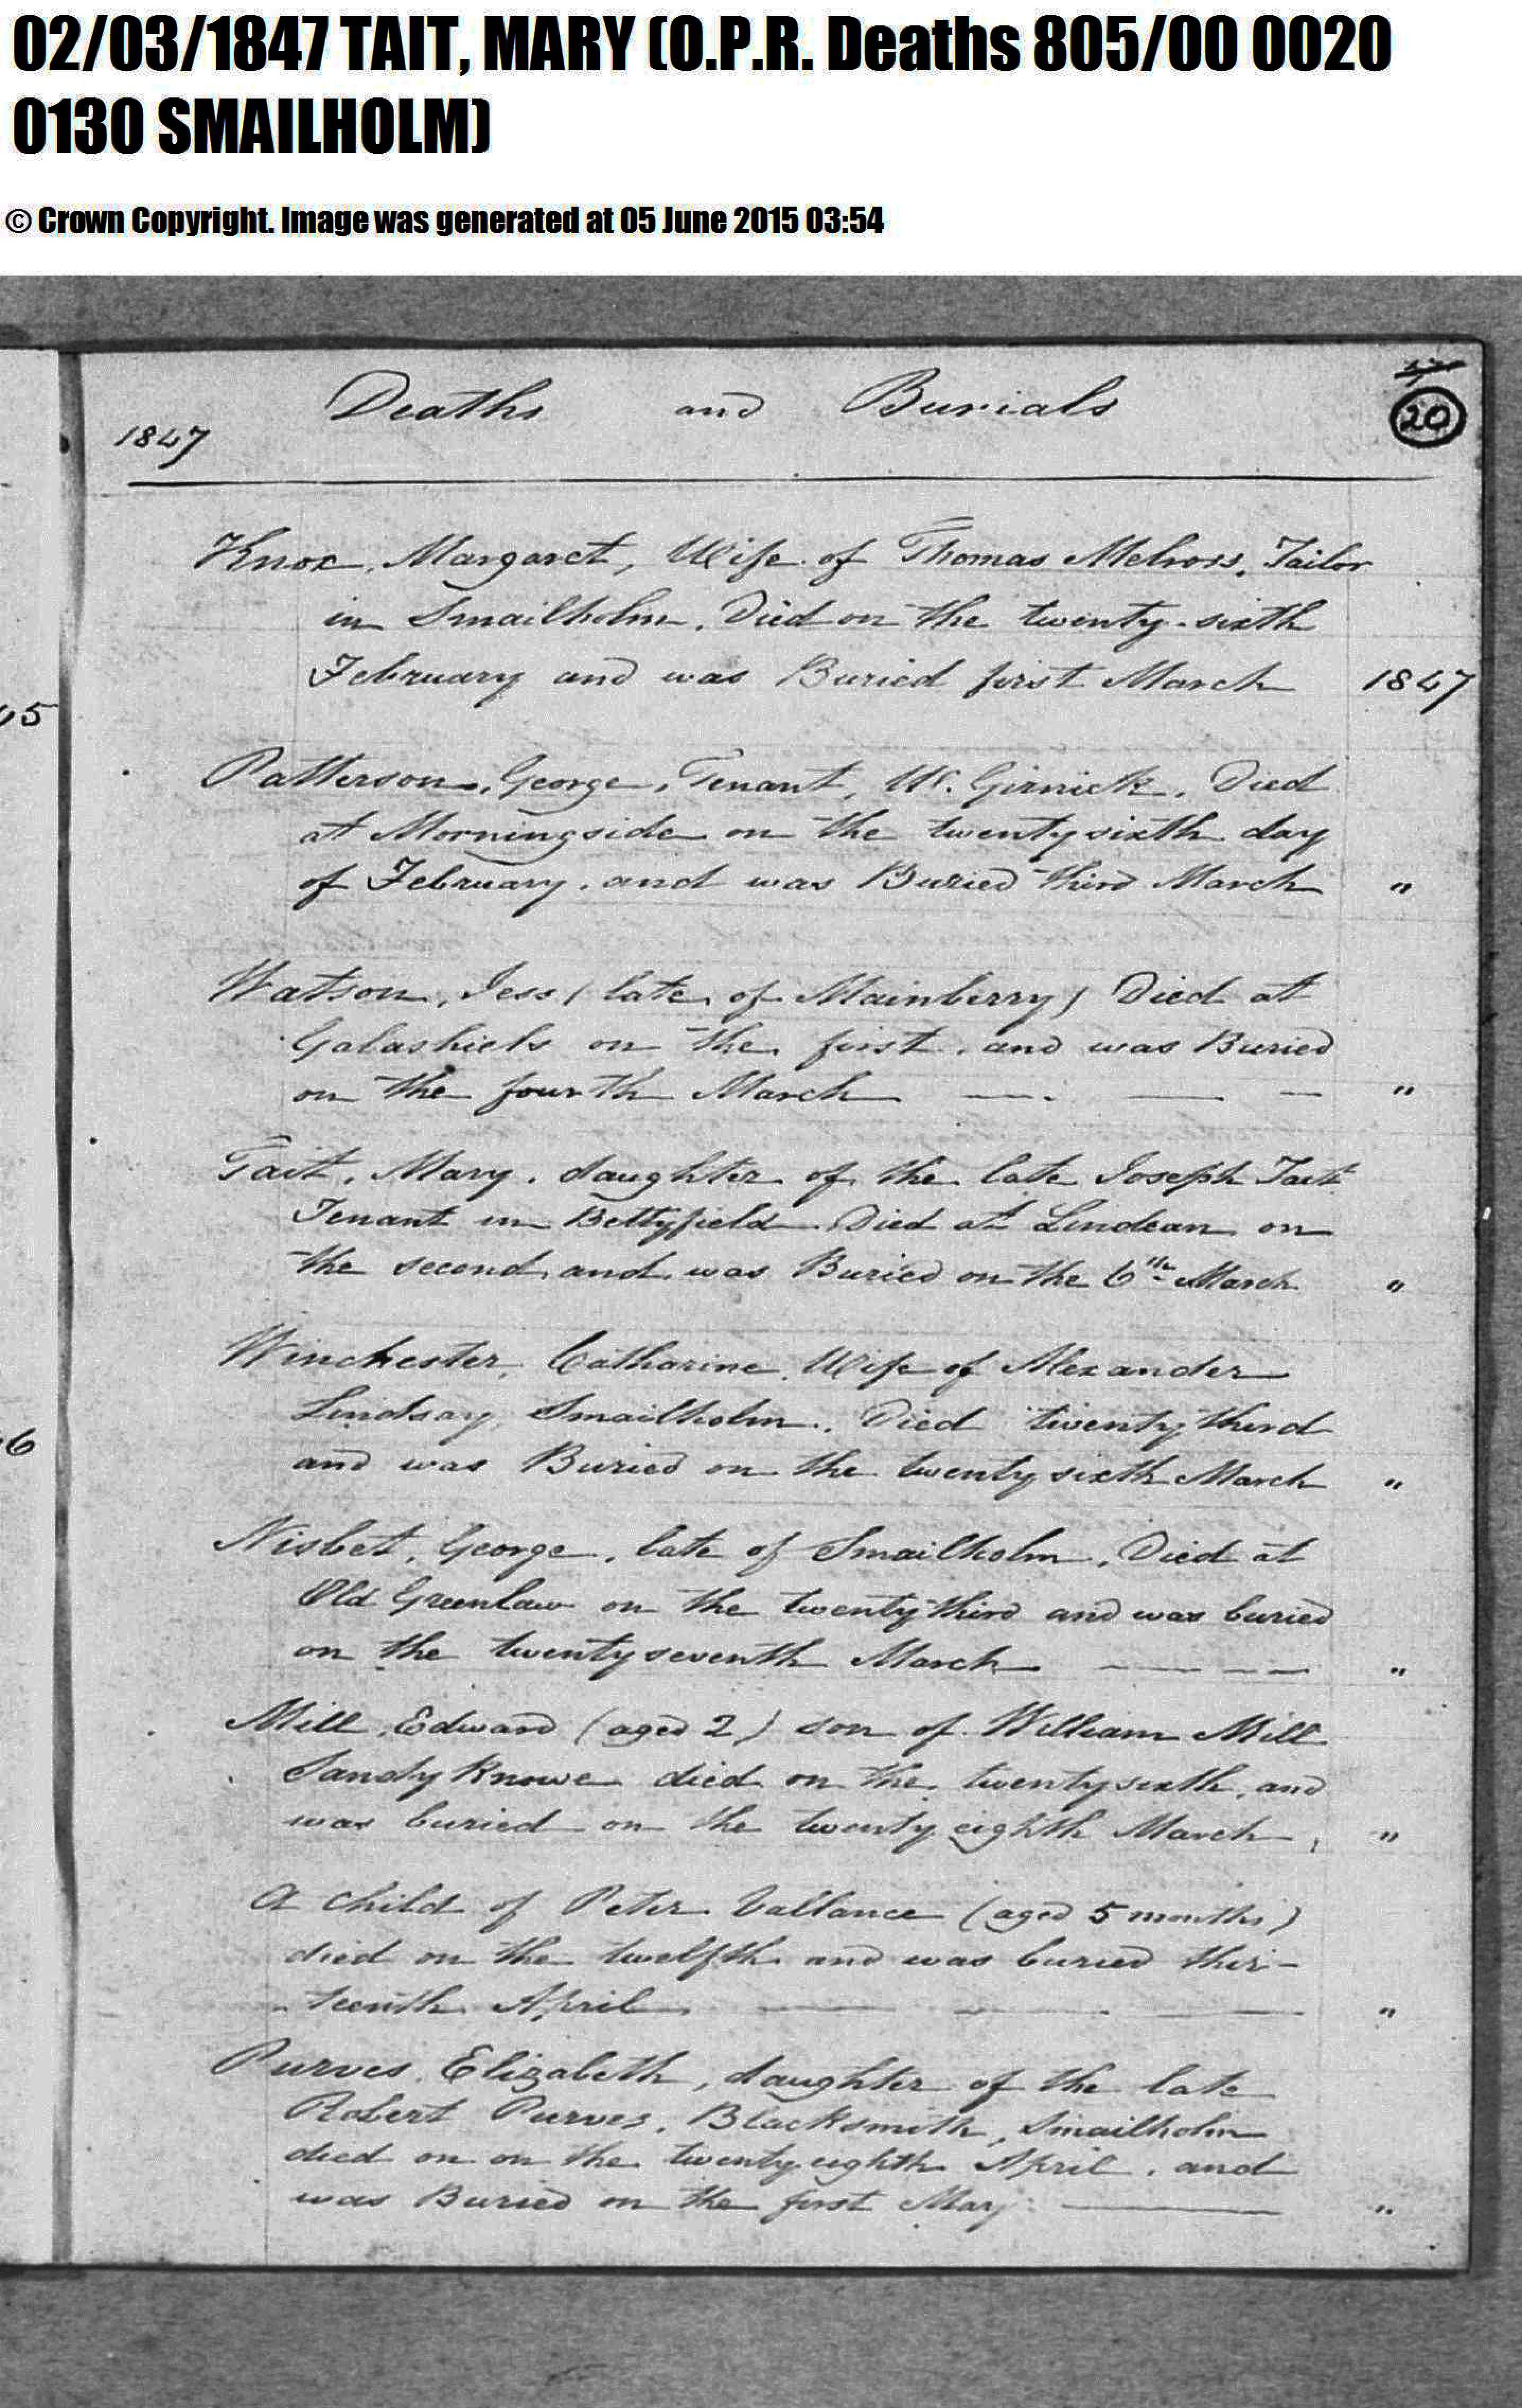 02/03/1847 TAIT, MARY (O.P.R. Deaths 805/00 0020
0130 SMAILHOLM)
© Crown Copyright. Image was generated at 05 June 2015 03:54
Deaths and Burials
20
1847
Knox, Margaret, Wife of Thomas Melross, Tailor
in Smailholm. Died on the twenty-sixth
February and was Buried first March 1847
Patterson, George, Tenant, W. Girnick. Died
at Morningside on the twenty sixth day
of February. and was Buried third March "
Watson, Jess (late of Mainberry) Died at
Galashiels on the first. and was Buried
on the fourth March "
Tait, Mary. daughter of the late Joseph Tait
Tenant in Bettyfield Died at Lindean on
the second and was Buried on the 6th March "
Winchester, Catharine, Wife of Alexander
Lindsay, Smailholm. Died twenty third
and was Buried on the twenty sixth March "
Nisbet, George, late of Smailholm, Died at
Old Greenlaw on the twenty third and was buried
on the twenty seventh March "
Mill, Edward (aged 2) son of William Mill
Sandy Knowe died on the twenty sixth, and
was buried on the twenty eighth March, "
A child of Peter Vallance (aged 5 months)
died on the twelfth and was buried thir-
-teenth April "
Purves, Elizabeth, daughter of the late
Robert Purves, Blacksmith, Smailholm
died on on the twenty eighth April. and
was Buried on the first May "